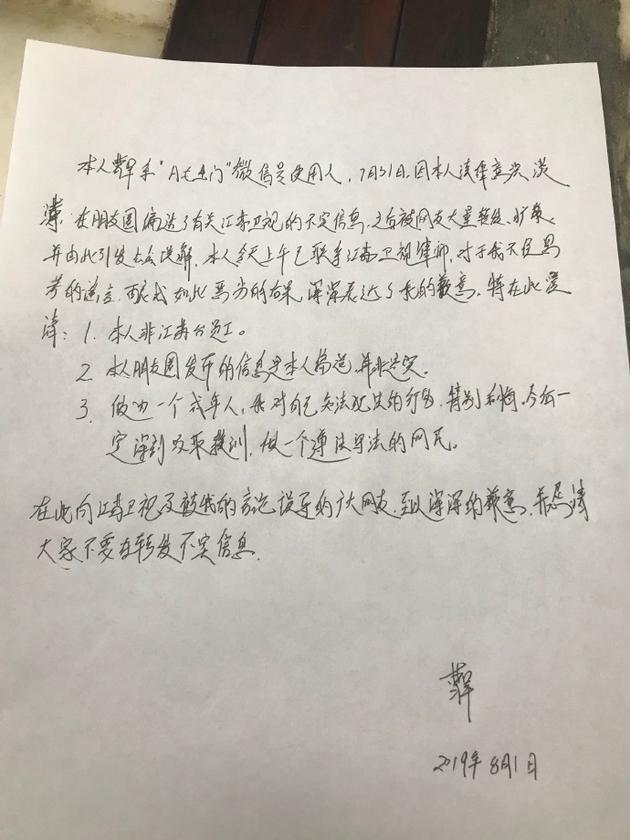 本人 系“月 门”微信号使用人，7月31日，因本人法律意识淡
薄，在朋友圈编造了有关江苏卫视的不实信息，之后被网友大量转发、扩散，
并由此引发社会误解，本人今天上午已联系江苏卫视律师，对于我不经思
考的谣言，而形成如此恶劣的后果，深深表达了我的歉意。特在此澄
清：1. 本人非江苏台员工。
2. 本人朋友圈发布的信息是本人编造，并非真实。
3. 做为一个成年人，我对自己无法 的行为，特别后悔，今后一
定深刻汲取教训，做一个遵法守法的网民。
在此向江苏卫视及被我的言论误导的广大网友，致以深深的歉意，并恳请
大家不要再转发不实信息。
2019年8月1日